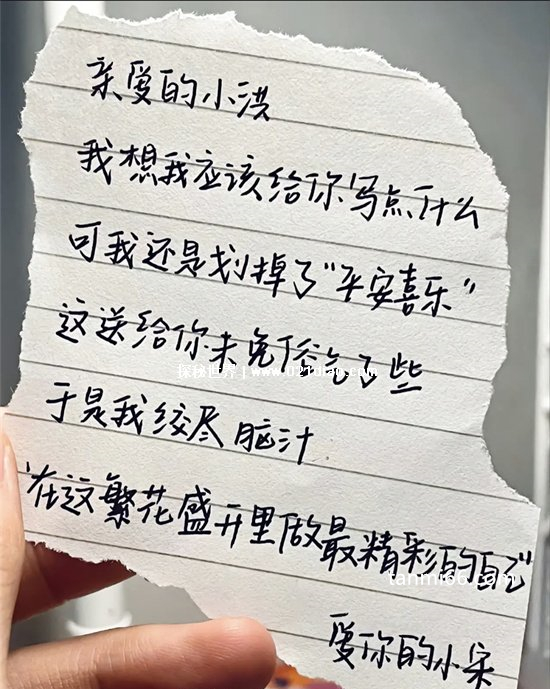 亲爱的小洪
我想我应该给你写点什么
可我还是划掉了“平安喜乐”
这送给你未免俗气了些
探秘世界 | www.021diao.com
于是我绞尽脑汁
“在这繁花盛开里做最精彩的自己”
tanmi66.com
爱你的小宋